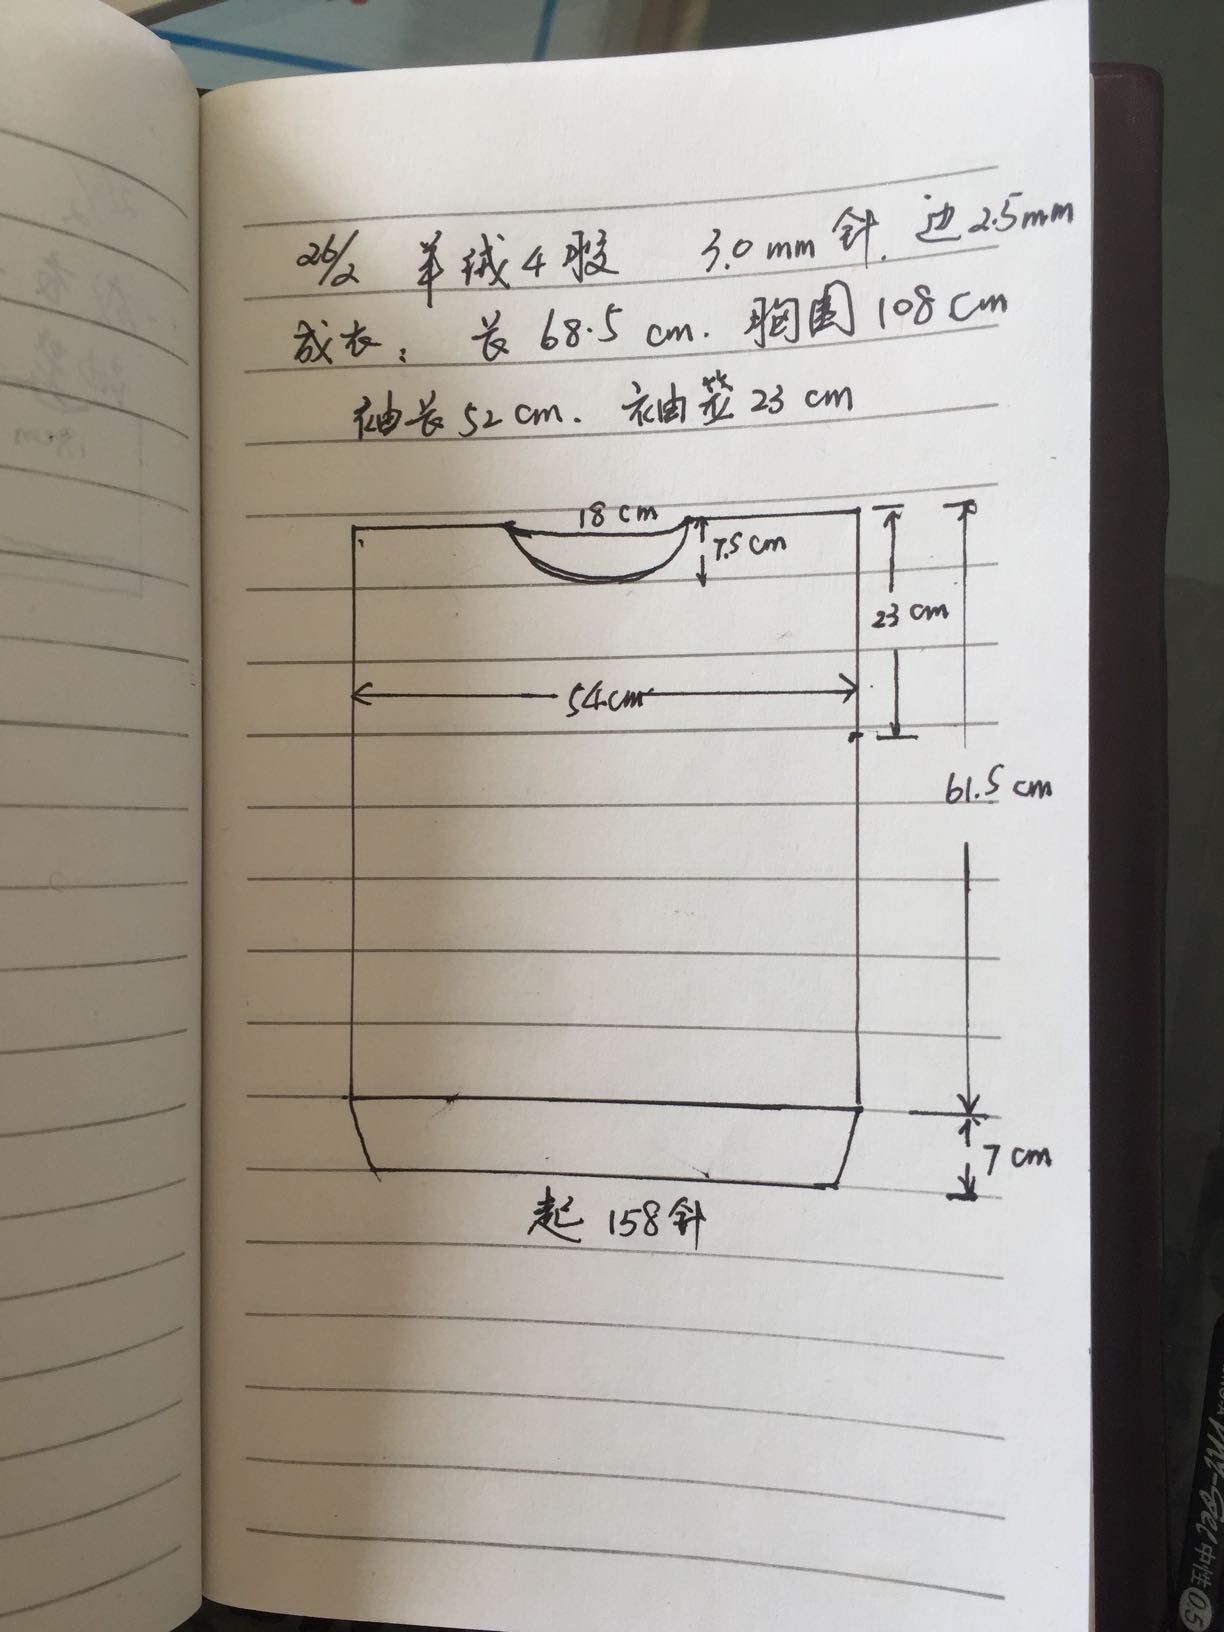 26/2 羊绒4股 3.0mm针. 边2.5mm
成衣: 长68.5cm. 胸围108cm
袖长52cm. 袖笼23cm
18cm
7.5cm
23cm
54cm
61.5cm
7cm
起158针
中性 0.5
18cm